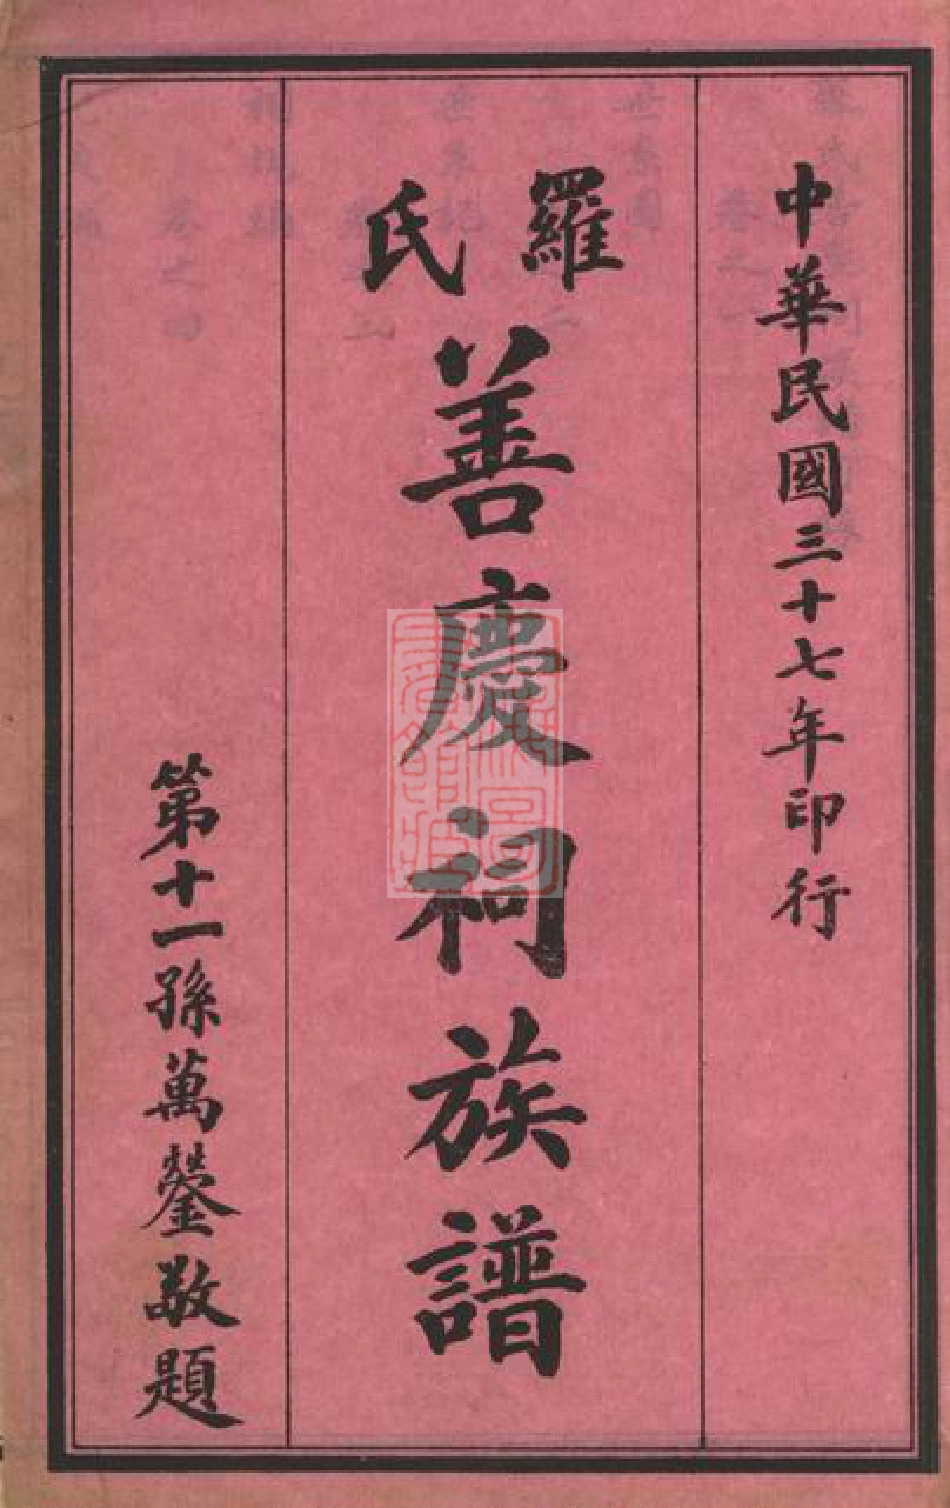 中華民國三十七年印行
羅氏
善慶祠族譜
第十一孫萬鎣敬題